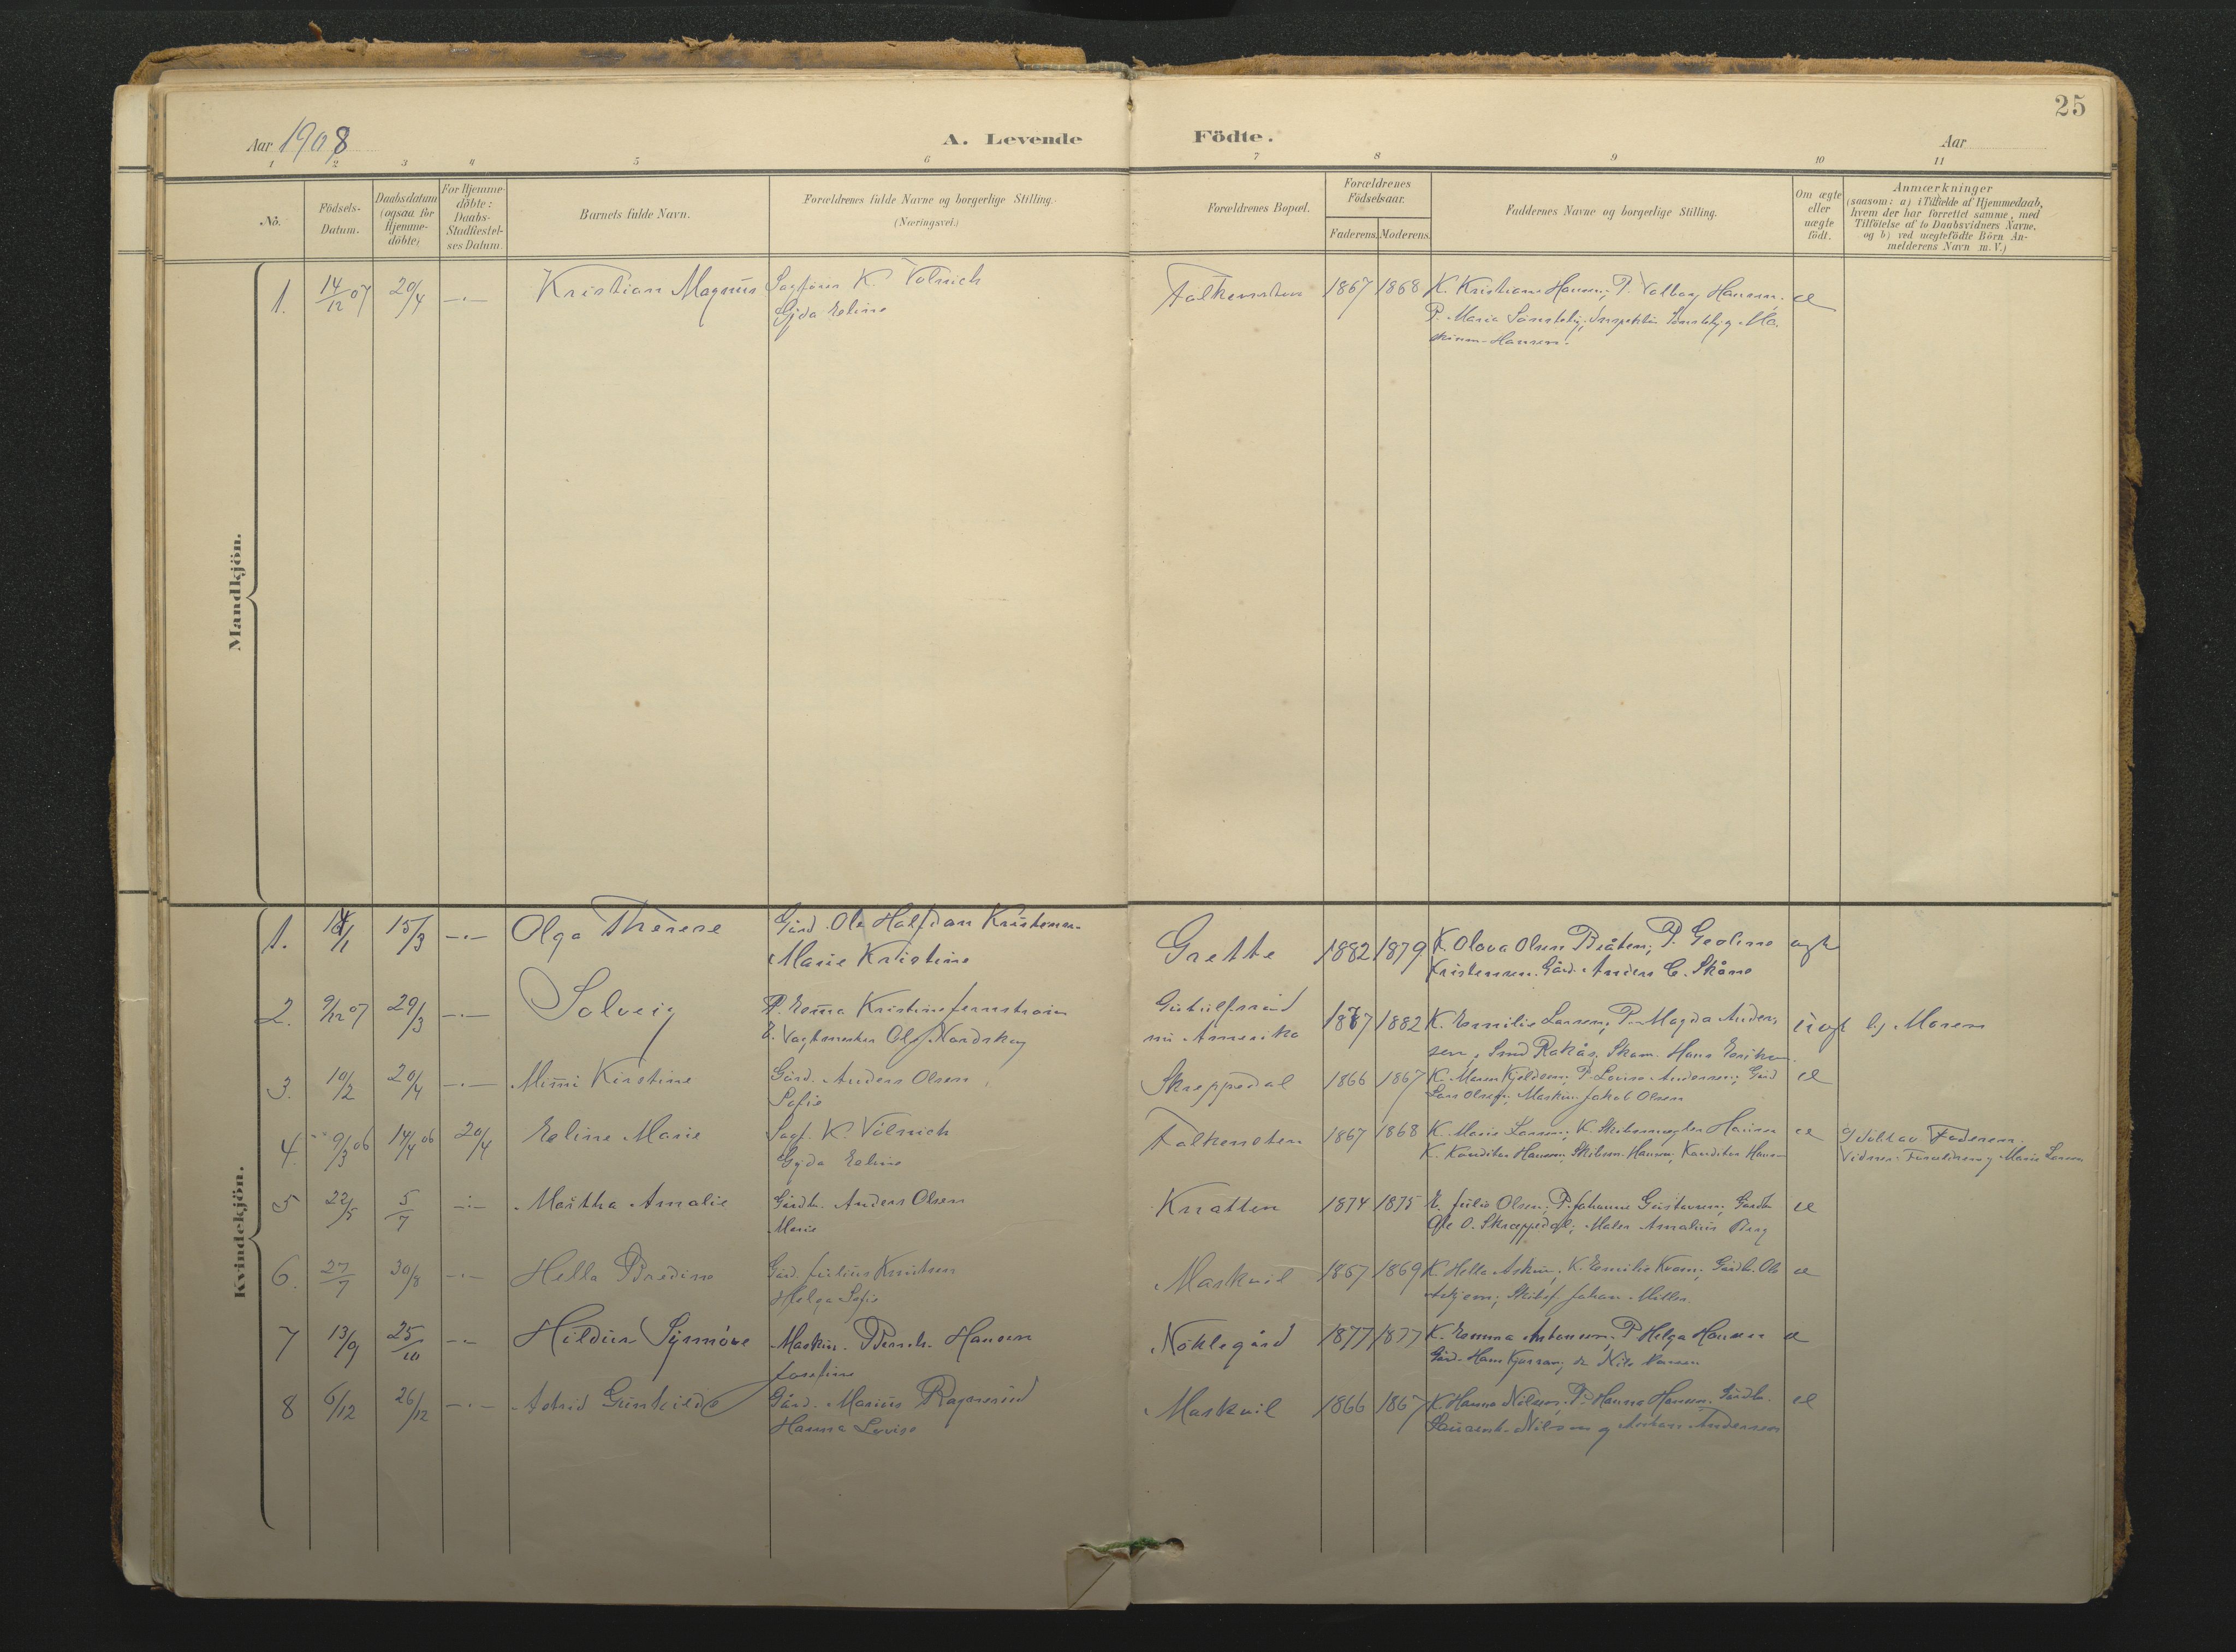 25
Aar 1908
A. Levende Födte.
Aar
1 2 3 4 5 6 7 8 9 10 11
No.
Födsels-Datum.
Daabsdatum (ogsaa for Hjemme-döbte)
For Hjemme-döbte: Daabs-Stadfæstel-ses Datum.
Barnets fulde Navn.
Forældrenes fulde Navne og borgerlige Stilling.
(Næringsvei.)
Forældrenes Bopæl.
Forældrenes Födselsaar.
Faderens. Moderens.
Faddernes Navne og borgerlige Stilling.
Om ægte eller uægte födt.
Anmærkninger
(saasom: a) i Tilfælde af Hjemmedaab,
hvem der har forrettet samme, med
Tilföielse af to Daabsvidners Navne,
og b) ved uægtefödte Börn An-
melderens Navn m. V.)
Mandkjön.
1. 14/12 07 20/4 -.- Kristian Magnus K. Volrich Falkensten 1867 1868 K. Kristiane Hansen; P. Valborg Hansen; æ
Gyda Eeline P. Maria
Hansen.
Kvindekjön.
1. 15/3 -.- Olga Therese Gård. Ole Halfdan Kristensen Grette 1882 1879 K. Olava Olsen Bråten; P. Geoline ægte
Marie Kristine Kristensen. Gård. Anders C. Skåne
2. 9/12 07 29/3 -.- Solveig P. Emma Kristine 1882 K. Emilie Larsen; P. Magda Ander-
Olaf Nordskog Amerika sen, Hans
b) Moren
3. 10/2 20/4 -.- Mimi Kirstine Gård. Anders Olsen Skreppedal 1866 1867 K. Maren P. Lovise Andersen; Gård
Sofie Lars Olsen; Maskin. Jakob Olsen æ
4. 9/3 06 14/4 06 20/4 Eeline Marie Sagf. K. Volrich Falkensten 1867 1868 K. Marie Larsen; K. Hansen æ
Gyda Eeline K. Konditor Hansen; Skibsm. Hansen; Konditor Hansen
a) døbt av Faderen.
Vidner: Marie Larsen
5 22/5 5/7 -.- Martha Amalie Gårdb. Anders Olsen Knatten 1874 1875 K. Julie Olsen; P. Johanne Gustavsen; Gårdb. æ
Marie Ole O. Skreppedal; Maler Berg
6. 27/7 30/8 -.- Hella Bredine Gård. Julius Knutsen Maskvil 1867 1869 K. Hella K. Emilie Gårdb. Ole æ
Helga Sofie Skibsf. Johan Møller
7 13/9 25/10 -.- Hildur Synnöve Maskin. Hansen Nöklegård 1877 1877 K. Emma Antonsen; P. Helga Hansen æ
Josefine Gård. Hans Nils
8 6/12 26/12 -.- Astrid Gunhild Gård. Marius Ragnerud Maskvil 1866 1867 K. Hanna Nilsen; P. Hanna Hansen; Gårdb. æ
Hanna Lovise Nilsen og Anton Andersen